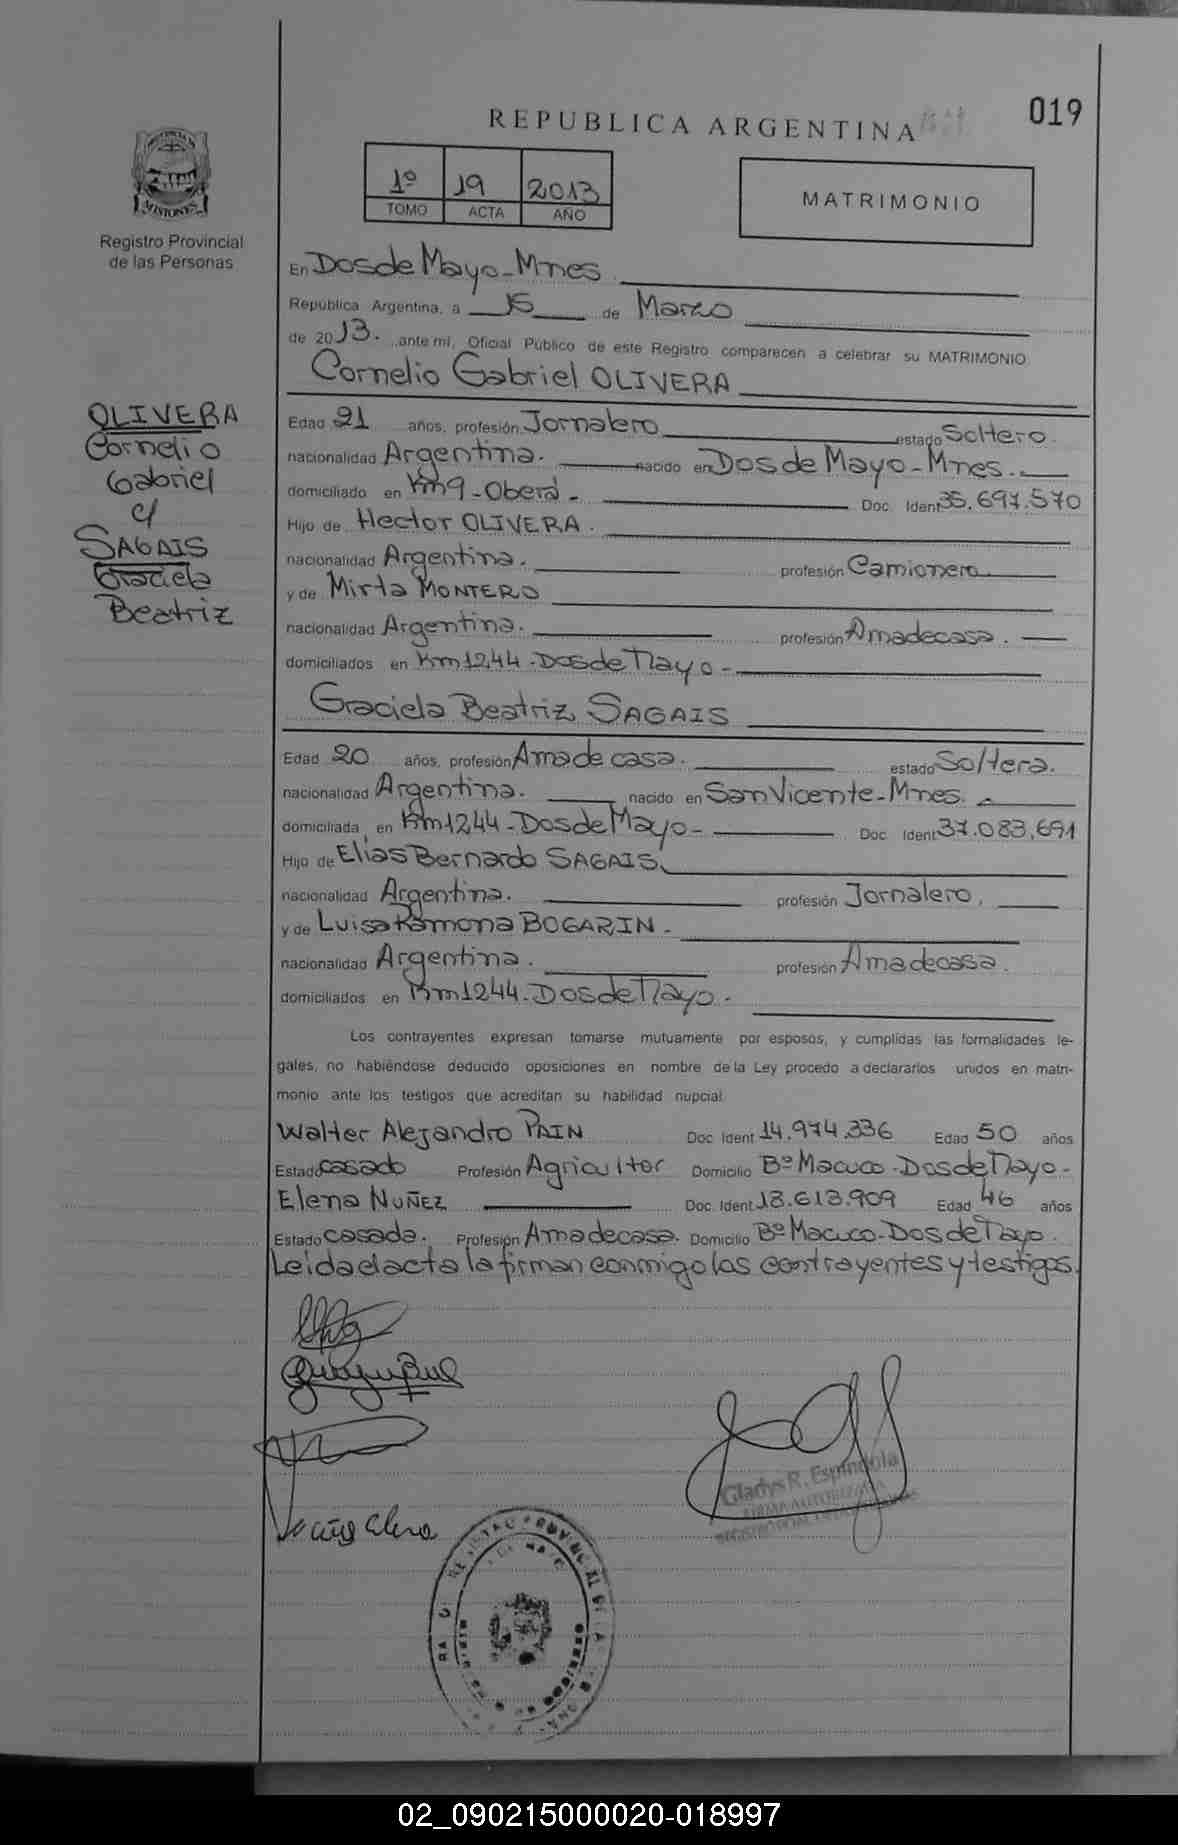 019
REPUBLICA ARGENTINA
1º 19 2013
TOMO ACTA AÑO
MATRIMONIO
MISIONES
Registro Provincial
de las Personas
En Dos de Mayo - Mnes.
República Argentina, a 15 de Marzo
de 2013. ante mí, Oficial Público de este Registro comparecen a celebrar su MATRIMONIO
Cornelio Gabriel OLIVERA
OLIVERA
Cornelio
Gabriel
c/
SAGAIS
Graciela
Beatriz
Edad 21 años, profesión Jornalero estado Soltero.
nacionalidad Argentina. nacido en Dos de Mayo - Mnes.
domiciliado en Km 9 - Oberá - Doc. Ident 35.697.570
Hijo de Hector OLIVERA.
nacionalidad Argentina. profesión Camionero
y de Mirta MONTERO
nacionalidad Argentina. profesión Ama de casa.
domiciliados en Km 1244 - Dos de Mayo -
Graciela Beatriz SAGAIS
Edad 20 años, profesión Ama de casa. estado Soltera.
nacionalidad Argentina. nacido en San Vicente - Mnes.
domiciliada en Km 1244 - Dos de Mayo - Doc. Ident 37.083.691
Hijo de Elias Bernardo SAGAIS.
nacionalidad Argentina. profesión Jornalero.
y de Luisa Ramona BOGARIN.
nacionalidad Argentina. profesión Ama de casa.
domiciliados en Km 1244 - Dos de Mayo.
Los contrayentes expresan tomarse mutuamente por esposos, y cumplidas las formalidades le-
gales, no habiéndose deducido oposiciones en nombre de la Ley procedo a declararlos unidos en matri-
monio ante los testigos que acreditan su habilidad nupcial
Walter Alejandro PAIN Doc. Ident 14.974.336 Edad 50 años
Estado casado Profesión Agricultor Domicilio Bº Macuco - Dos de Mayo -
Elena NUÑEZ Doc. Ident 18.613.909 Edad 46 años
Estado casada. Profesión Ama de casa. Domicilio Bº Macuco - Dos de Mayo.
Leida el acta la firman conmigo los contrayentes y testigos.
Gladys R. Espindola
FIRMA AUTORIZADA
02_090215000020-018997